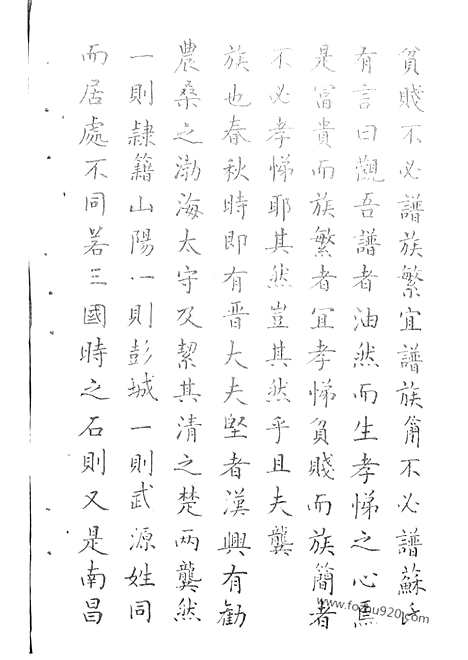 貧賤不必譜族繁宜譜族簡不必譜蘇氏
有言曰觀吾譜者油然而生孝悌之心焉
是富貴而族繁者宜孝悌貧賤而族簡者
不必孝悌耶其然豈其然乎且夫龔
族也春秋時即有晋大夫堅者漢興有勸
農桑之渤海太守及絜其清之楚兩龔然
一則隷籍山陽一則彭城一則武源姓同
而居處不同若三國時之石則又是南昌
www.fozhu920.com